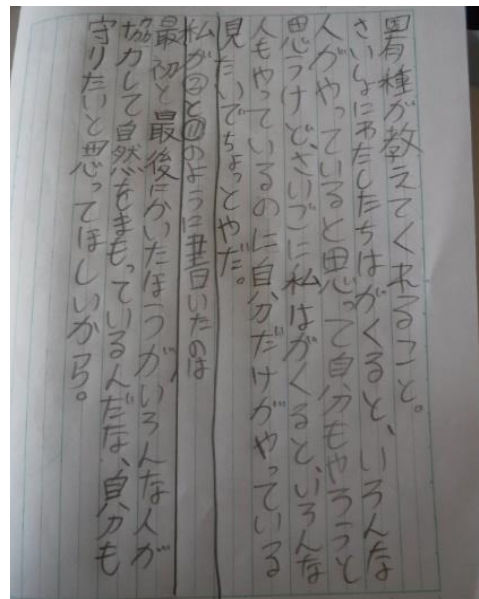 固有種が教えてくれること。
さいしょにわたしたちはがくると、いろんな
人がやっていると思って自分もやろうと
思うけど、さいごに私はがくると、いろんな
人もやっているのに自分だけがやっている
見たいでちょっとやだ。
私が㋐と㋑のように書いたのは
最初と最後にかいたほうがいろんな人が
協力して自然をまもっているんだな、自分も
守りたいと思ってほしいから。